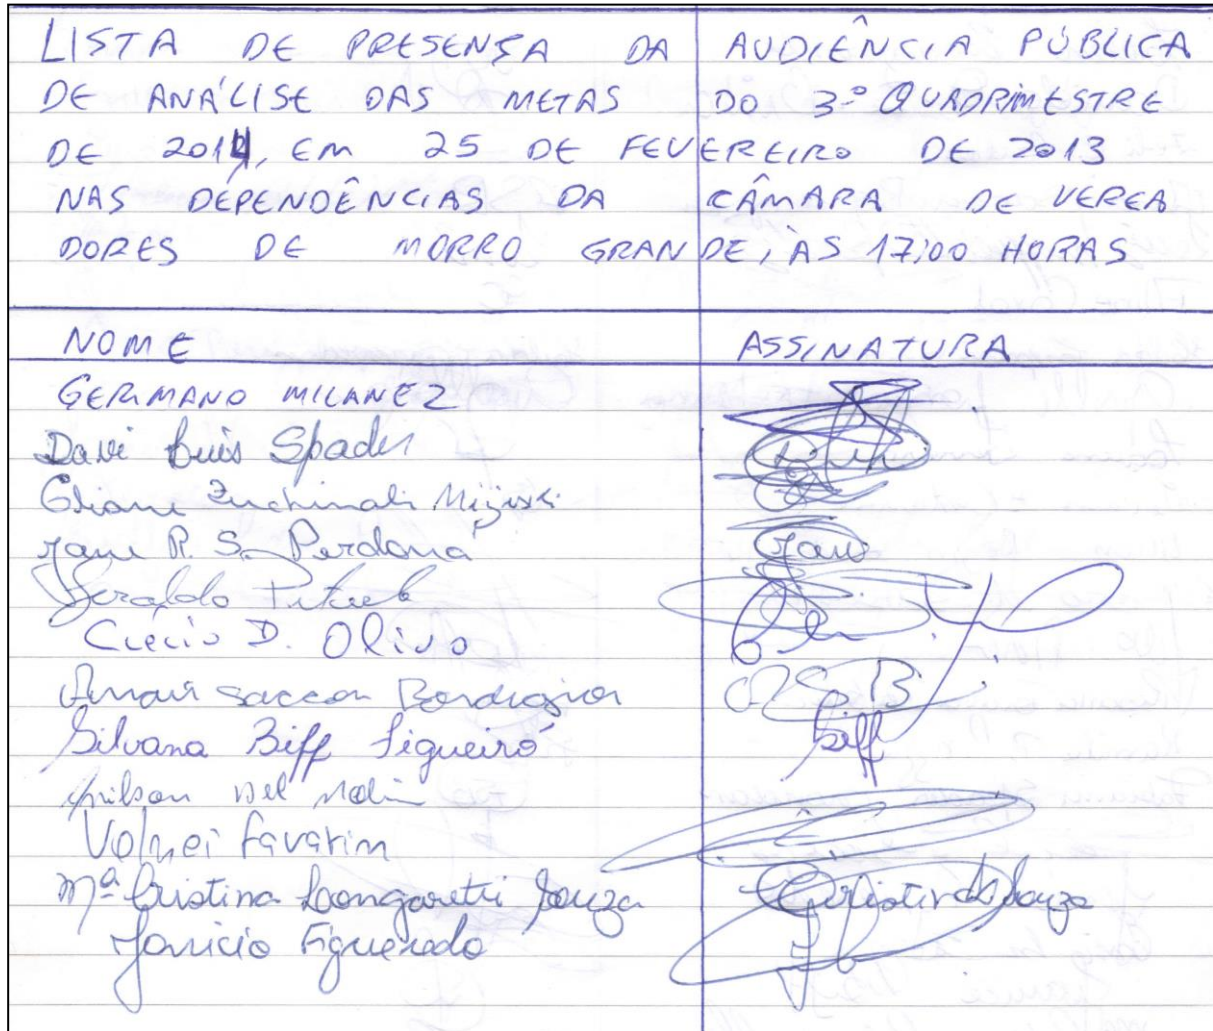 LISTA DE PRESENÇA DA AUDIÊNCIA PÚBLICA
DE ANÁLISE DAS METAS DO 3º QUADRIMESTRE
DE 2012, EM 25 DE FEVEREIRO DE 2013
NAS DEPENDÊNCIAS DA CÂMARA DE VEREA
DORES DE MORRO GRANDE, ÀS 17:00 HORAS
NOME ASSINATURA
GERMANO MILANEZ
Davi Luis Spader
Zuchinali
Jane R. S. Perdoná Jane
Geraldo
Clécio D. Olivo
saccon Bordignon
Silvana Biff Figueiró Biff
Del
Volnei Favarim
Mª Cristina Longaretti Souza Cristina Souza
Janicio Figueredo